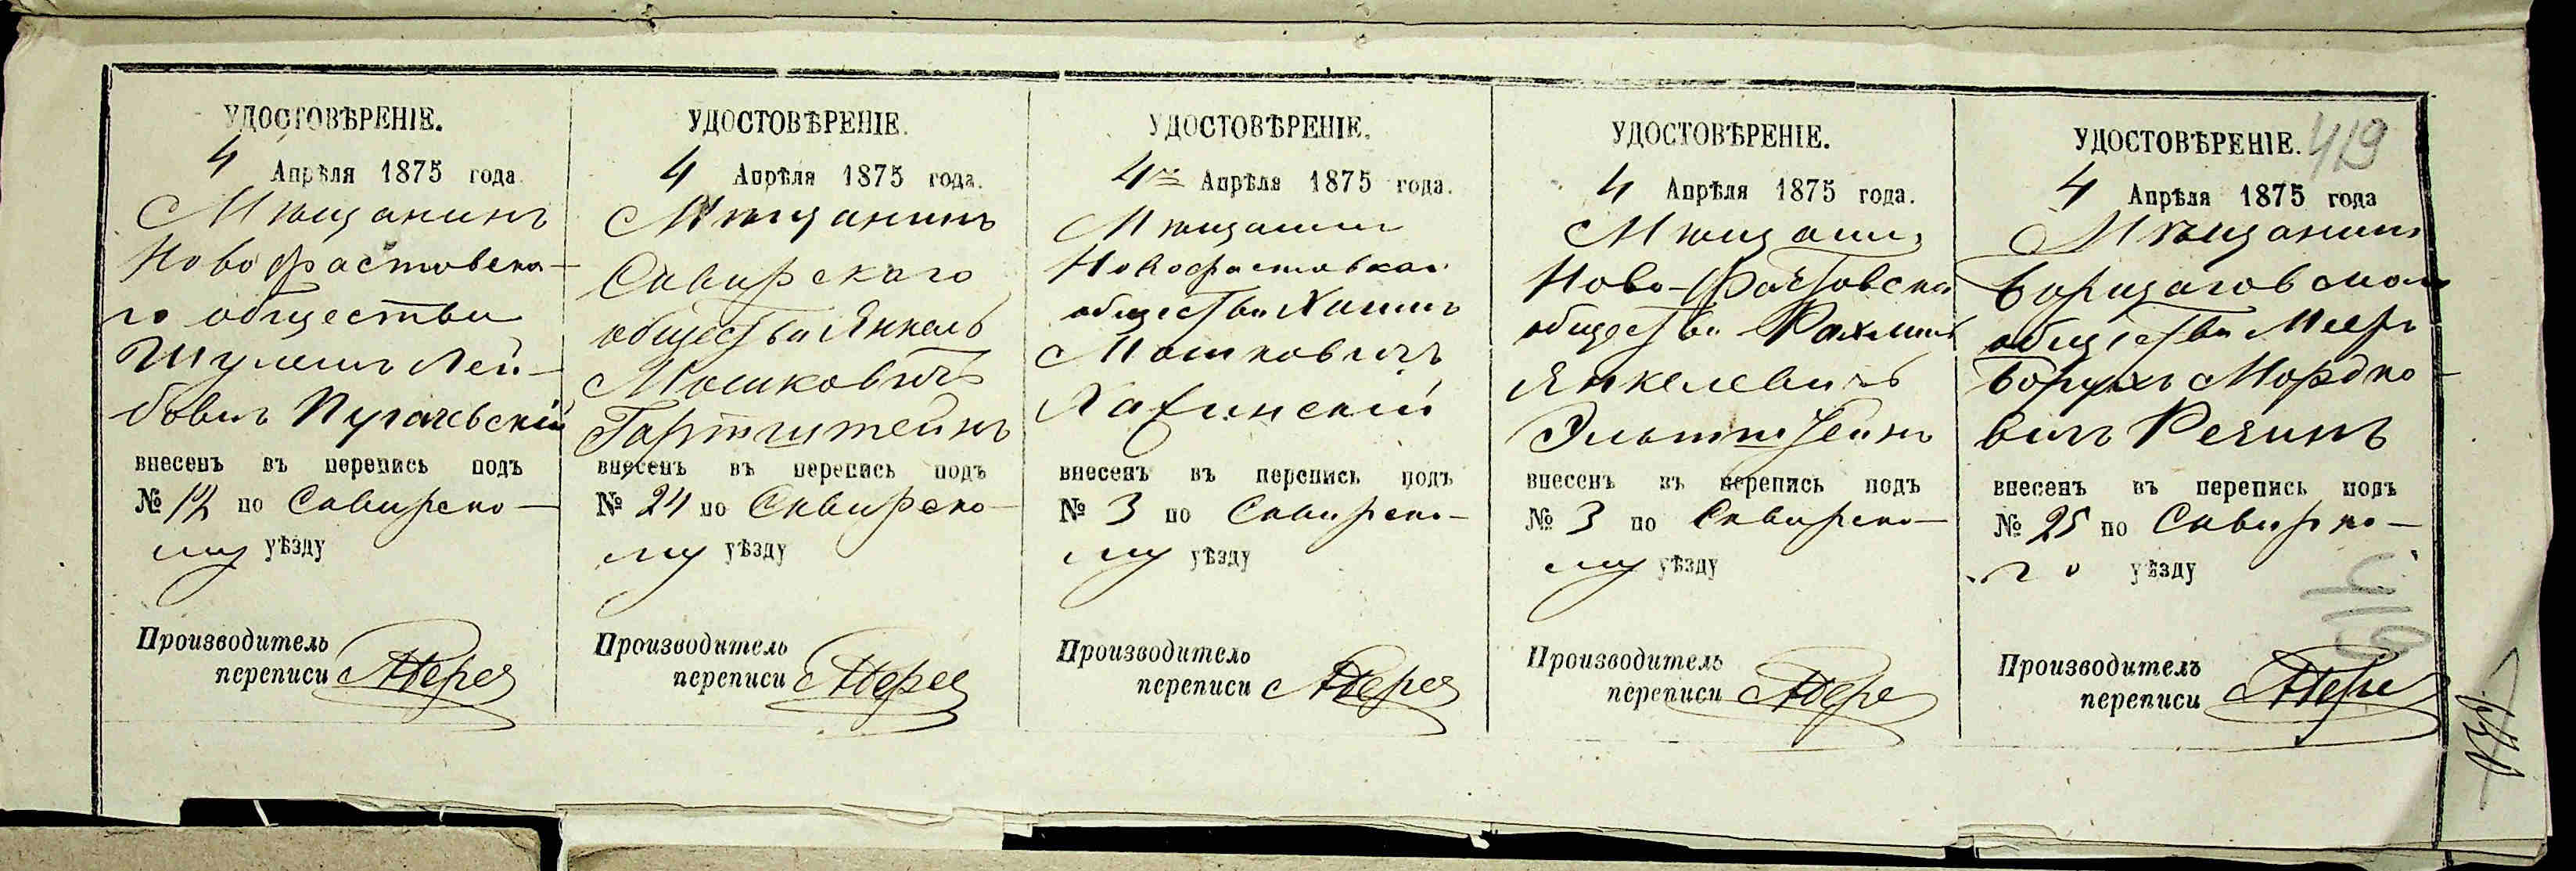 УДОСТОВѢРЕНІЕ.
4 Апрѣля 1875 года
Мѣщанинъ
Новофастовска-
го общества
Шулимъ Лей-
бовичъ Пугачевскій
внесенъ въ перепись подъ
№ 12 по Сквирско-
му уѣзду
Производитель
переписи
УДОСТОВѢРЕНІЕ.
4 Апрѣля 1875 года.
Мѣщанинъ
Сквирскаго
общества Янкель
Мошковичъ
Гартштейнъ
внесенъ въ перепись подъ
№ 24 по Сквирско-
му уѣзду
Производитель
переписи
УДОСТОВѢРЕНІЕ.
4го Апрѣля 1875 года.
Мѣщанинъ
Новофастовскаго
общества Хаимъ
Мошковичъ
внесенъ въ перепись подъ
№ 3 по Сквирско-
му уѣзду
Производитель
переписи
УДОСТОВѢРЕНІЕ.
4 Апрѣля 1875 года.
Мѣщанинъ
Ново-Фастовскаго
общества Рахмиль
Янкелевичъ
внесенъ въ перепись подъ
№ 3 по Сквирско-
му уѣзду
Производитель
переписи
УДОСТОВѢРЕНІЕ. 419
4 Апрѣля 1875 года
Мѣщанинъ
общества Мееръ
Борухъ Мордко-
вичъ
внесенъ въ перепись подъ
№ 25 по Сквирско-
го уѣзду
Производитель
переписи